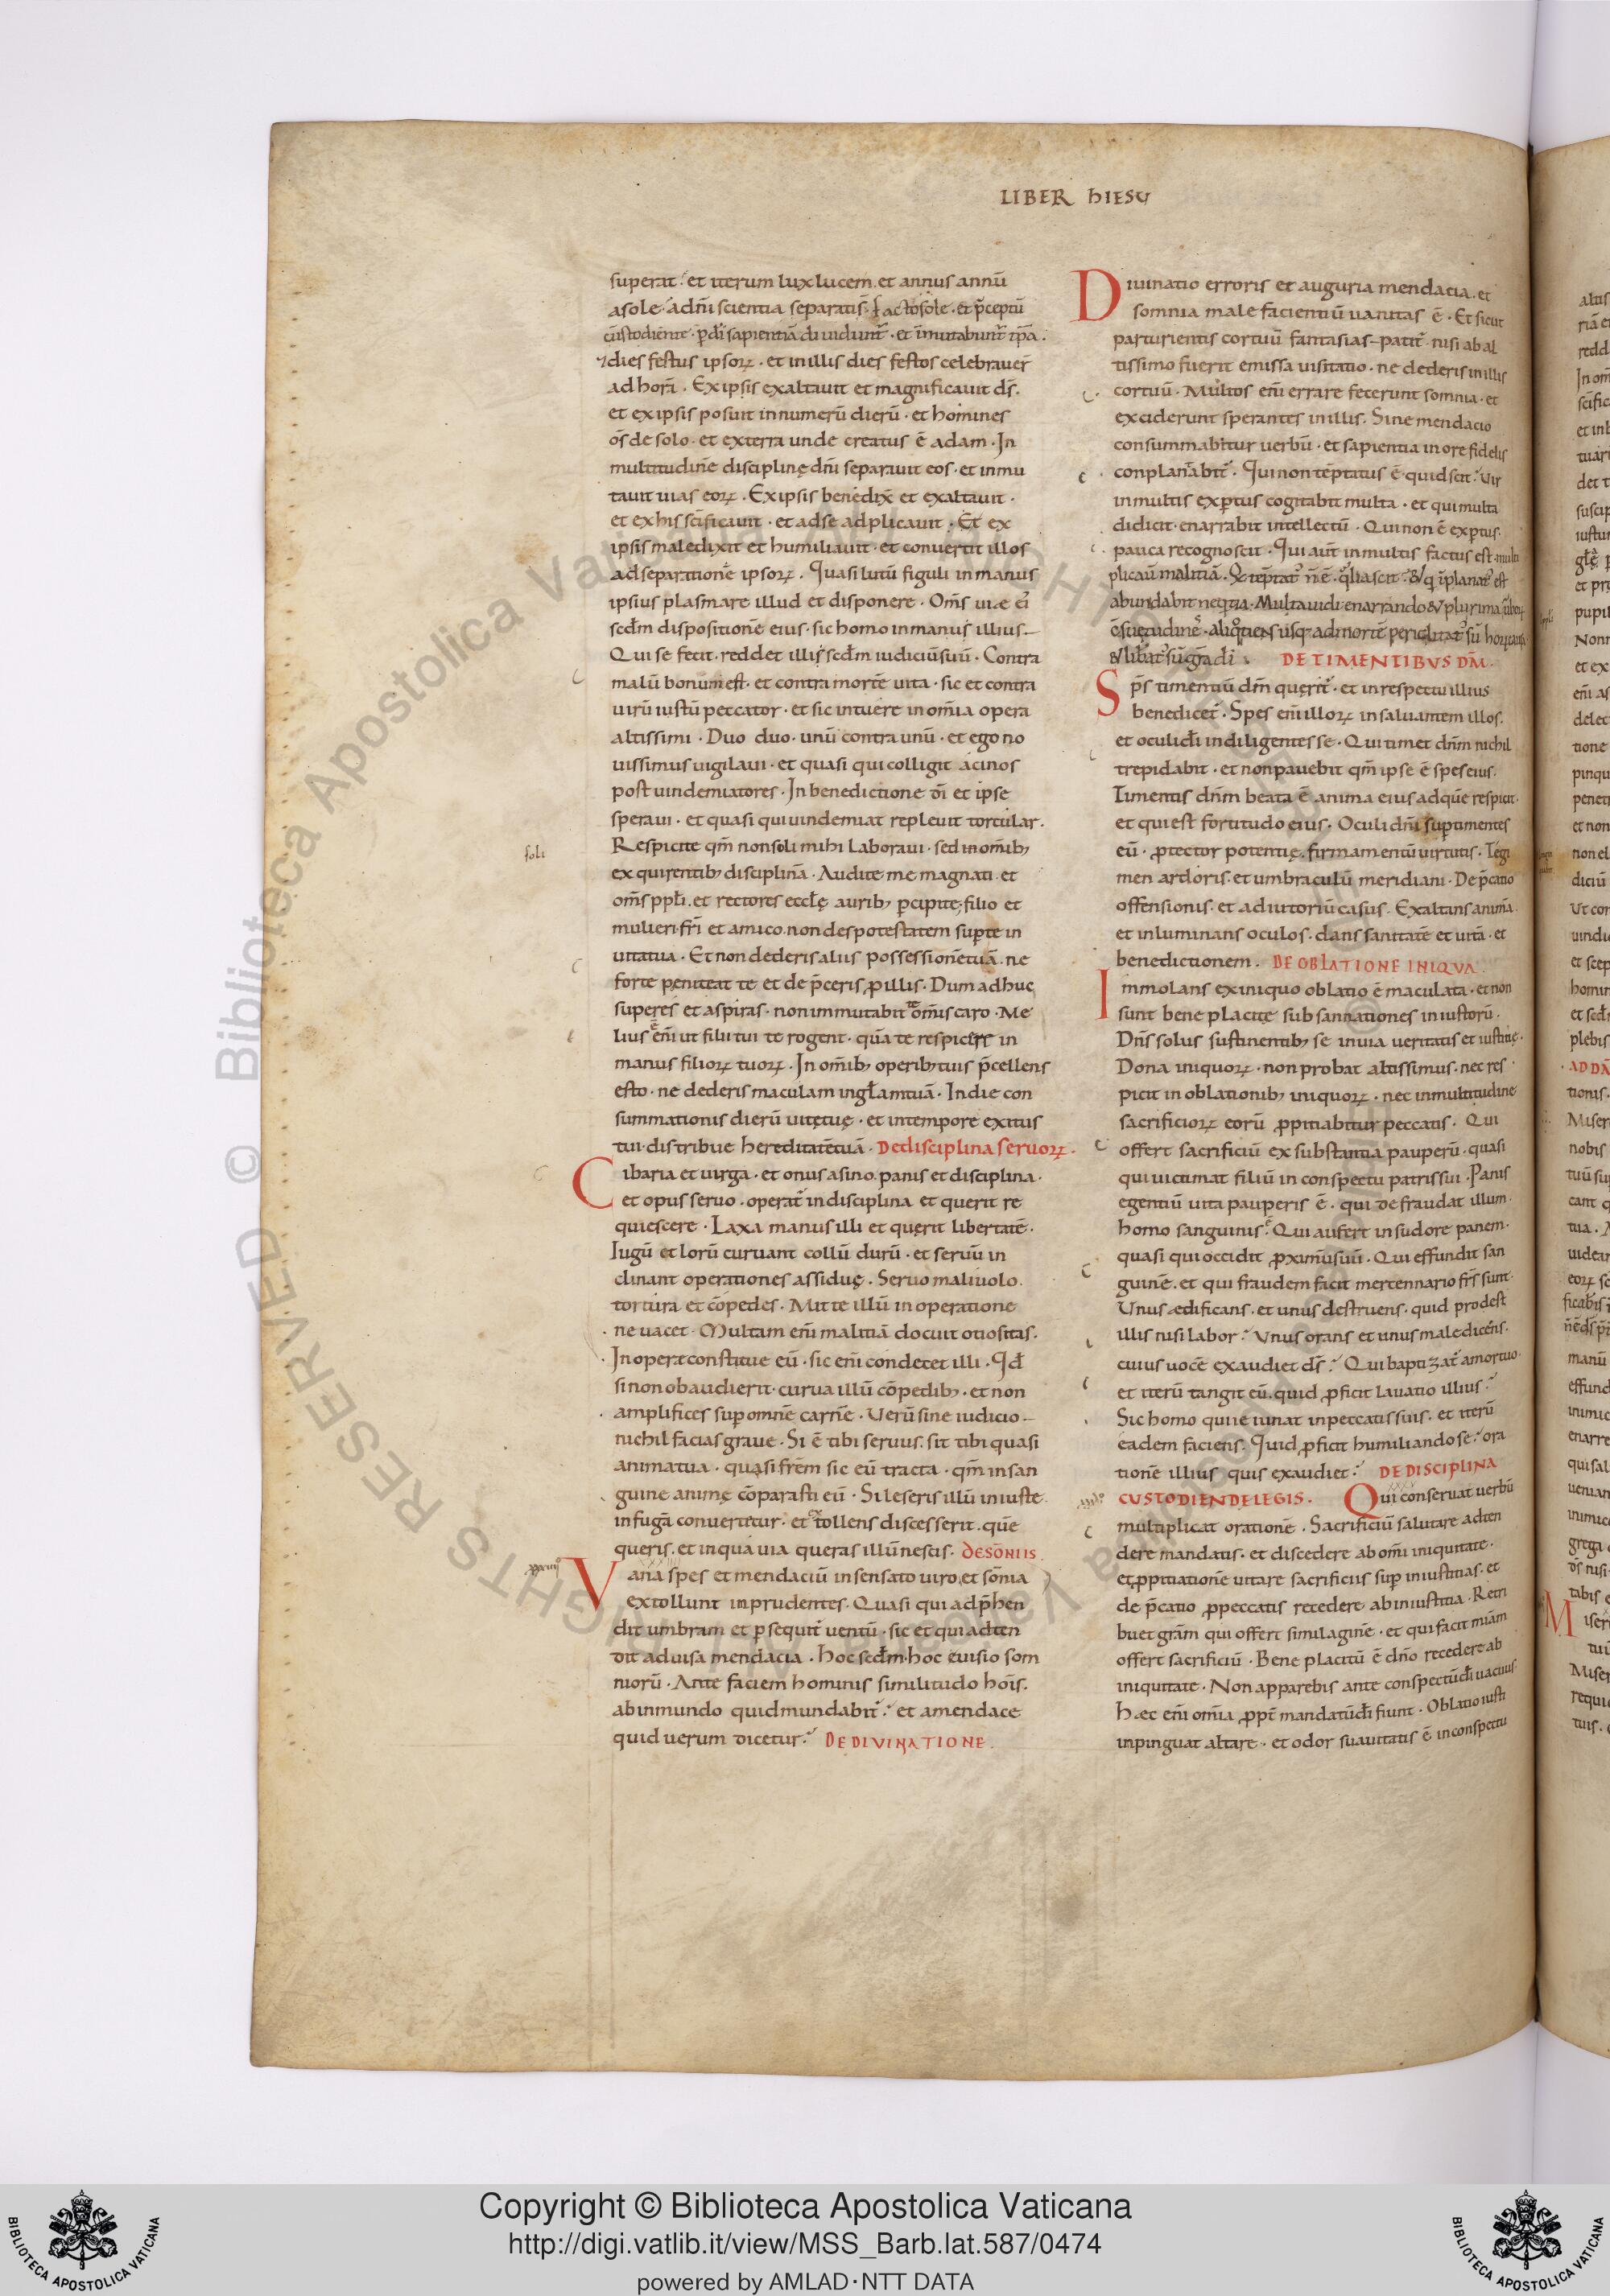 LIBER HIESU
superat? et iterum lux lucem. et annus annū
a sole. a dñi scientia separatiſ. facto sole. et p̄ceptū
cūstodiente.
dies festus ipsoꝝ. et in illis dies festos celebraver̄
ad horā. Ex ipsis exaltavit et magnificavit dſ̄.
et ex ipsis posuit in numerū dierū. et homines
om̄s de solo. et ex terra unde creatus ē adam. In
multitudine disciplinę dñi separavit eos. et inmu
tavit vias eoꝝ. Ex ipsis benedix̄ et exaltavit.
et ex his sc̄ificavit. et ad se adplicavit. Et ex
ipsis maledixit et humiliavit. et convertit illos
ad separationē ipsoꝝ. Quasi lutū figuli in manus
ipsius plasmare illud et disponere. Om̄s viæ ei'
scdm̄ dispositionē eius. sic homo in manus illius
Qui se fecit. reddet illis scdm̄ iudiciū suū. Contra
malū bonum est. et contra mortē vita. sic et contra
virū iustū peccator. et sic intuere in om̄ia opera
altissimi. Duo duo. unū contra unū. et ego no
vissimus vigilavi. et quasi qui colligit acinos
post vindemiatores. In benedictione dī et ipse
speravi. et quasi qui vindemiat replevit torcular.
soli
Respicite qm̄ non soli mihi laboravi. sed in om̄ib;
exquirentib; disciplinā. Audite me magnati. et
om̄s ppłi. et rectores eccłę aurib; percipite; filio et
mulieri. fr̄i et amico. non des potestatem sup te in
vita tua. Et non dederis aliis possessionē tuā. ne
forte peniteat te et dep̄ceris pro illis. Dum adhuc
superes et aspiras. non immutabit te om̄is caro. Me
lius ē eñi ut filii tui te rogent. quā te respicere in
manus filioꝝ tuoꝝ. In om̄ib; operib; tuis p̄cellens
esto. ne dederis maculam in gl̄am tuā. In die con
summationis dierū vitę tuę. et in tempore exitus
tui. distribue hereditatē tuā. De disciplina servoꝝ.
Cibaria et virga. et onus asino. panis et disciplina.
et opus servo. operat̄ in disciplina et querit re
quiescere. Laxa manus illi et quęrit libertatē.
Iugū et lorū curvant collū durū. et servū in
clinant operationes assiduę. Servo malivolo.
tortura et cōpedes. Mitte illū in operatione
ne vacet. Multam eñi malitiā docuit otiositas.
In opera constitue eū. sic eñi condecet illi. Qd̄
si non obaudierit. curva illū cōpedib;. et non
amplifices sup omnē carnē. Verū sine iudicio
nichil facias grave. Si ē tibi servus. sit tibi quasi
anima tua. quasi fr̄em sic eū tracta. qm̄ in san
guine animę cōparasti eū. Si leseris illū iniuste.
in fugā convertetur. et tollens discesserit. quē
queris. et in qua via queras illū nescis. DE SOMNIIS
xxxiiii
Vana spes et mendaciū insensato viro. et sōnia
extollunt inprudentes. Quasi qui adp̄hen
dit umbram et persequit̄ ventū. sic et qui adten
dit ad visa mendacia. Hoc scdm̄. hoc ē visio som
niorū. Ante faciem hominis similitudo hoīs.
ab inmundo quid mundabit̄? et a mendace
quid verum dicetur? DE DIVINATIONE.
Divinatio erroris et auguria mendacia. et
somnia malefacientiū vanitas ē. Et sicut
parturientis cor tuū fantasias patit̄. nisi ab al
tissimo fuerit emissa visitatio. ne dederis in illis
cor tuū. Multos eñi errare fecerunt somnia. et
exciderunt sperantes in illis. Sine mendacio
consummabitur verbū. et sapientia in ore fidelis
conplanabit̄. Qui non tēptatus ē. quid scit? Vir
in multis expertus cogitabit multa. et qui multa
didicit. enarrabit intellectū. Qui non ē exptus.
pauca recognoscit. Qui aut̄ in multis factus est. multi
plicat malitiā.
abundabit neqtia. Multa vidi enarrando & plurima
DE TIMENTIBVS DM̄.
Sp̄s timentiū dm̄ querit̄. et in respectu illius
benedicet̄. Spes eñi illoꝝ in salvantem illos.
et oculi dī in diligentes se. Qui timet dn̄m nichil
trepidabit. et non pavebit qm̄ ipse ē spes eius.
Timentis dn̄m beata ē anima eius ad quē respicit.
et qui est fortitudo eius. Oculi dn̄i sup timentes
eū. protector potentię. firmamentū virtutis. Tegi
men ardoris. et umbraculū meridiani. Dep̄catio
offensionis. et adiutoriū casus. Exaltans animā.
et inluminans oculos. dans sanitatē et vitā. et
benedictionem. DE OBLATIONE INIQVA.
Immolans ex iniquo oblatio ē maculata. et non
sunt bene placitę subsannationes iniustorū.
Dn̄s solus sustinentib; se in via veritatis et iustitię.
Dona iniquoꝝ. non probat altissimus. nec res
picit in oblationib; iniquoꝝ. nec in multitudine
sacrificioꝝ eorū ppitiabitur peccatis. Qui
offert sacrificiū ex substantia pauperū. quasi
qui victimat filiū in conspectu patris sui. Panis
egentiū vita pauperis ē. qui defraudat illum.
homo sanguinis ē. Qui aufert in sudore panem.
quasi qui occidit proximū suū. Qui effundit san
guinē. et qui fraudem facit mercennario fr̄s sunt.
Unus ædificans. et unus destruens. quid prodest
illis nisi labor? Unus orans et unus maledicens.
cuius vocē exaudiet ds̄? Qui baptizat̄ a mortuo.
et iterū tangit eū. quid proficit lavatio illius?
Sic homo qui ieiunat in peccatis suis. et iterū
eadem faciens. Quid proficit humiliando se? ora
tionē illius quis exaudiet? DE DISCIPLINA
CVSTODIENDE LEGIS. Qui conservat verbū
multiplicat orationē. Sacrificiū salutare adten
dere mandatis. et discedere ab om̄i iniquitate.
et ppitiationē vitare sacrificiis sup iniustitias. et
dep̄catio pro peccatis recedere ab iniustitia. Retri
buet gr̄am qui offert similaginē. et qui facit mīam
offert sacrificiū. Bene placitū ē dn̄o recedere ab
iniquitate. Non apparebis ante conspectū dī vacuus.
Hæc eñi om̄ia propt̄ mandatū dī fiunt. Oblatio iusti
inpinguat altare. et odor suavitatis ē in conspectu
Copyright © Biblioteca Apostolica Vaticana
http://digi.vatlib.it/view/MSS_Barb.lat.587/0474
powered by AMLAD·NTT DATA
BIBLIOTECA APOSTOLICA VATICANA
BIBLIOTECA APOSTOLICA VATICANA